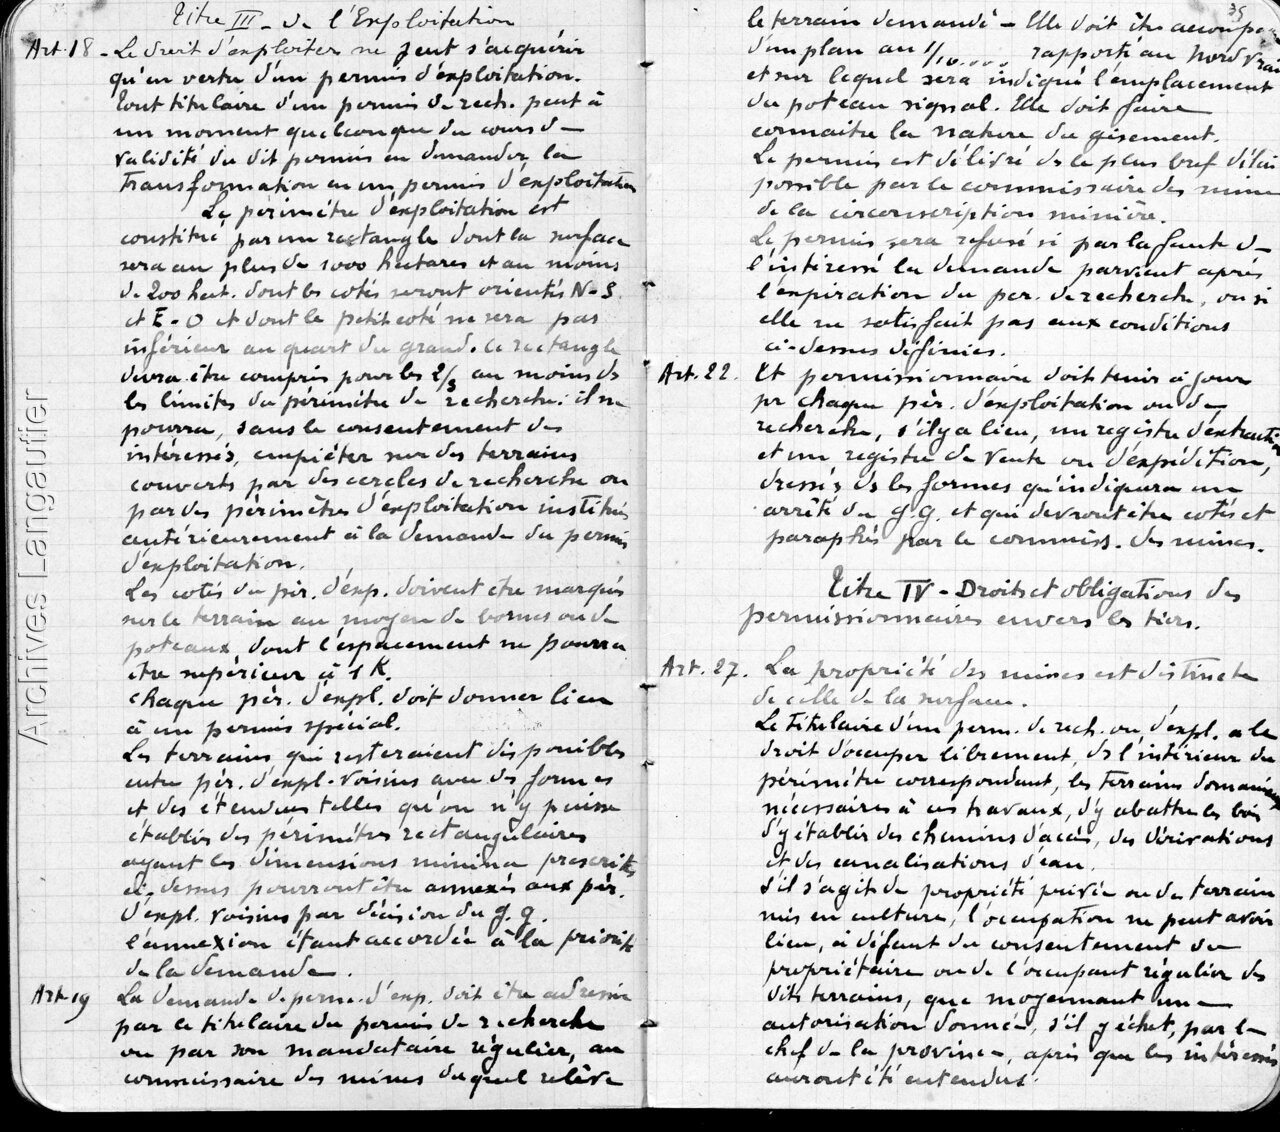 Titre III - de l'Exploitation
Art. 18 - Le droit d'exploiter ne peut s'acquérir
qu'en vertu d'un permis d'exploitation.
Tout titulaire d'un permis de rech. peut à
un moment quelconque du cours de
validité du dit permis en demander la
transformation en un permis d'exploitation
Le périmètre d'exploitation est
constitué par un rectangle dont la surface
sera au plus de 1000 hectares et au moins
de 200 hect. dont les cotés seront orientés N-S
et E-O et dont le petit coté ne sera pas
inférieur au quart du grand. Ce rectangle
devra être compris pour les 2/3 au moins ds
les limites du périmètre de recherche : il ne
pourra, sans le consentement des
intéressés, empiéter sur des terrains
couverts par des cercles de recherche ou
par des périmètres d'exploitation institués
antérieurement à la demande du permis
d'exploitation.
Les cotés du pér. d'exp. doivent être marqués
sur le terrain au moyen de bornes ou de
poteaux dont l'espacement ne pourra
être supérieur à 1 K.
Chaque pér. d'expl. doit donner lieu
à un permis spécial.
Les terrains qui resteraient disponibles
entre pér. d'expl. voisins avec des formes
et des étendues telles qu'on n'y puisse
établir des périmètres rectangulaires
ayant les dimensions minima prescrites
ci-dessus pourront être annexés aux pér.
d'expl. voisins par décision du g. g.
l'annexion étant accordée à la priorité
de la demande.
Art. 19 La demande de perm. d'exp. doit être adressée
par le titulaire du permis de recherche
ou par son mandataire régulier, au
commissaire des mines duquel relève
35
le terrain demandé - Elle doit être accomp
d'un plan au 1/10.... rapporté au Nord vrai
et sur lequel sera indiqué l'emplacement
du poteau signal. Elle doit faire
connaitre la nature du gisement.
Le permis est délivré ds le plus bref délai
possible par le commissaire des mines
de la circonscription minière.
Le permis sera refusé si par la faute de
l'intéressé la demande parvient après
l'expiration du per. de recherche, ou si
elle ne satisfait pas aux conditions
ci-dessus définies.
Art. 22. Et permissionnaire doit tenir à jour
pr chaque pér. d'exploitation ou de
recherche, s'il y a lieu, un registre d'extraction
et un registre de vente ou d'expédition,
dressés ds les formes qu'indiquera un
arrêté du g. g. et qui devront être cotés et
paraphés par le commiss. des mines.
Titre IV - Droits et obligations des
permissionnaires envers les tiers.
Art. 27. La propriété des mines est distincte
de celle de la surface.
Le titulaire d'un perm. de rech. ou d'expl. a le
droit d'occuper librement, ds l'intérieur du
périmètre correspondant, les terrains domaniaux
nécessaires à ces travaux, d'y abattre les bois
d'y établir des chemins d'accès, des dérivations
et des canalisations d'eau.
S'il s'agit de propriété privée ou de terrain
mis en culture, l'occupation ne peut avoir
lieu, à défaut du consentement du
propriétaire ou de l'occupant régulier des
dits terrains, que moyennant une
autorisation donnée, s'il y échet, par le
chef de la province, après que les intéressés
auront été entendus.
Archives Langautier